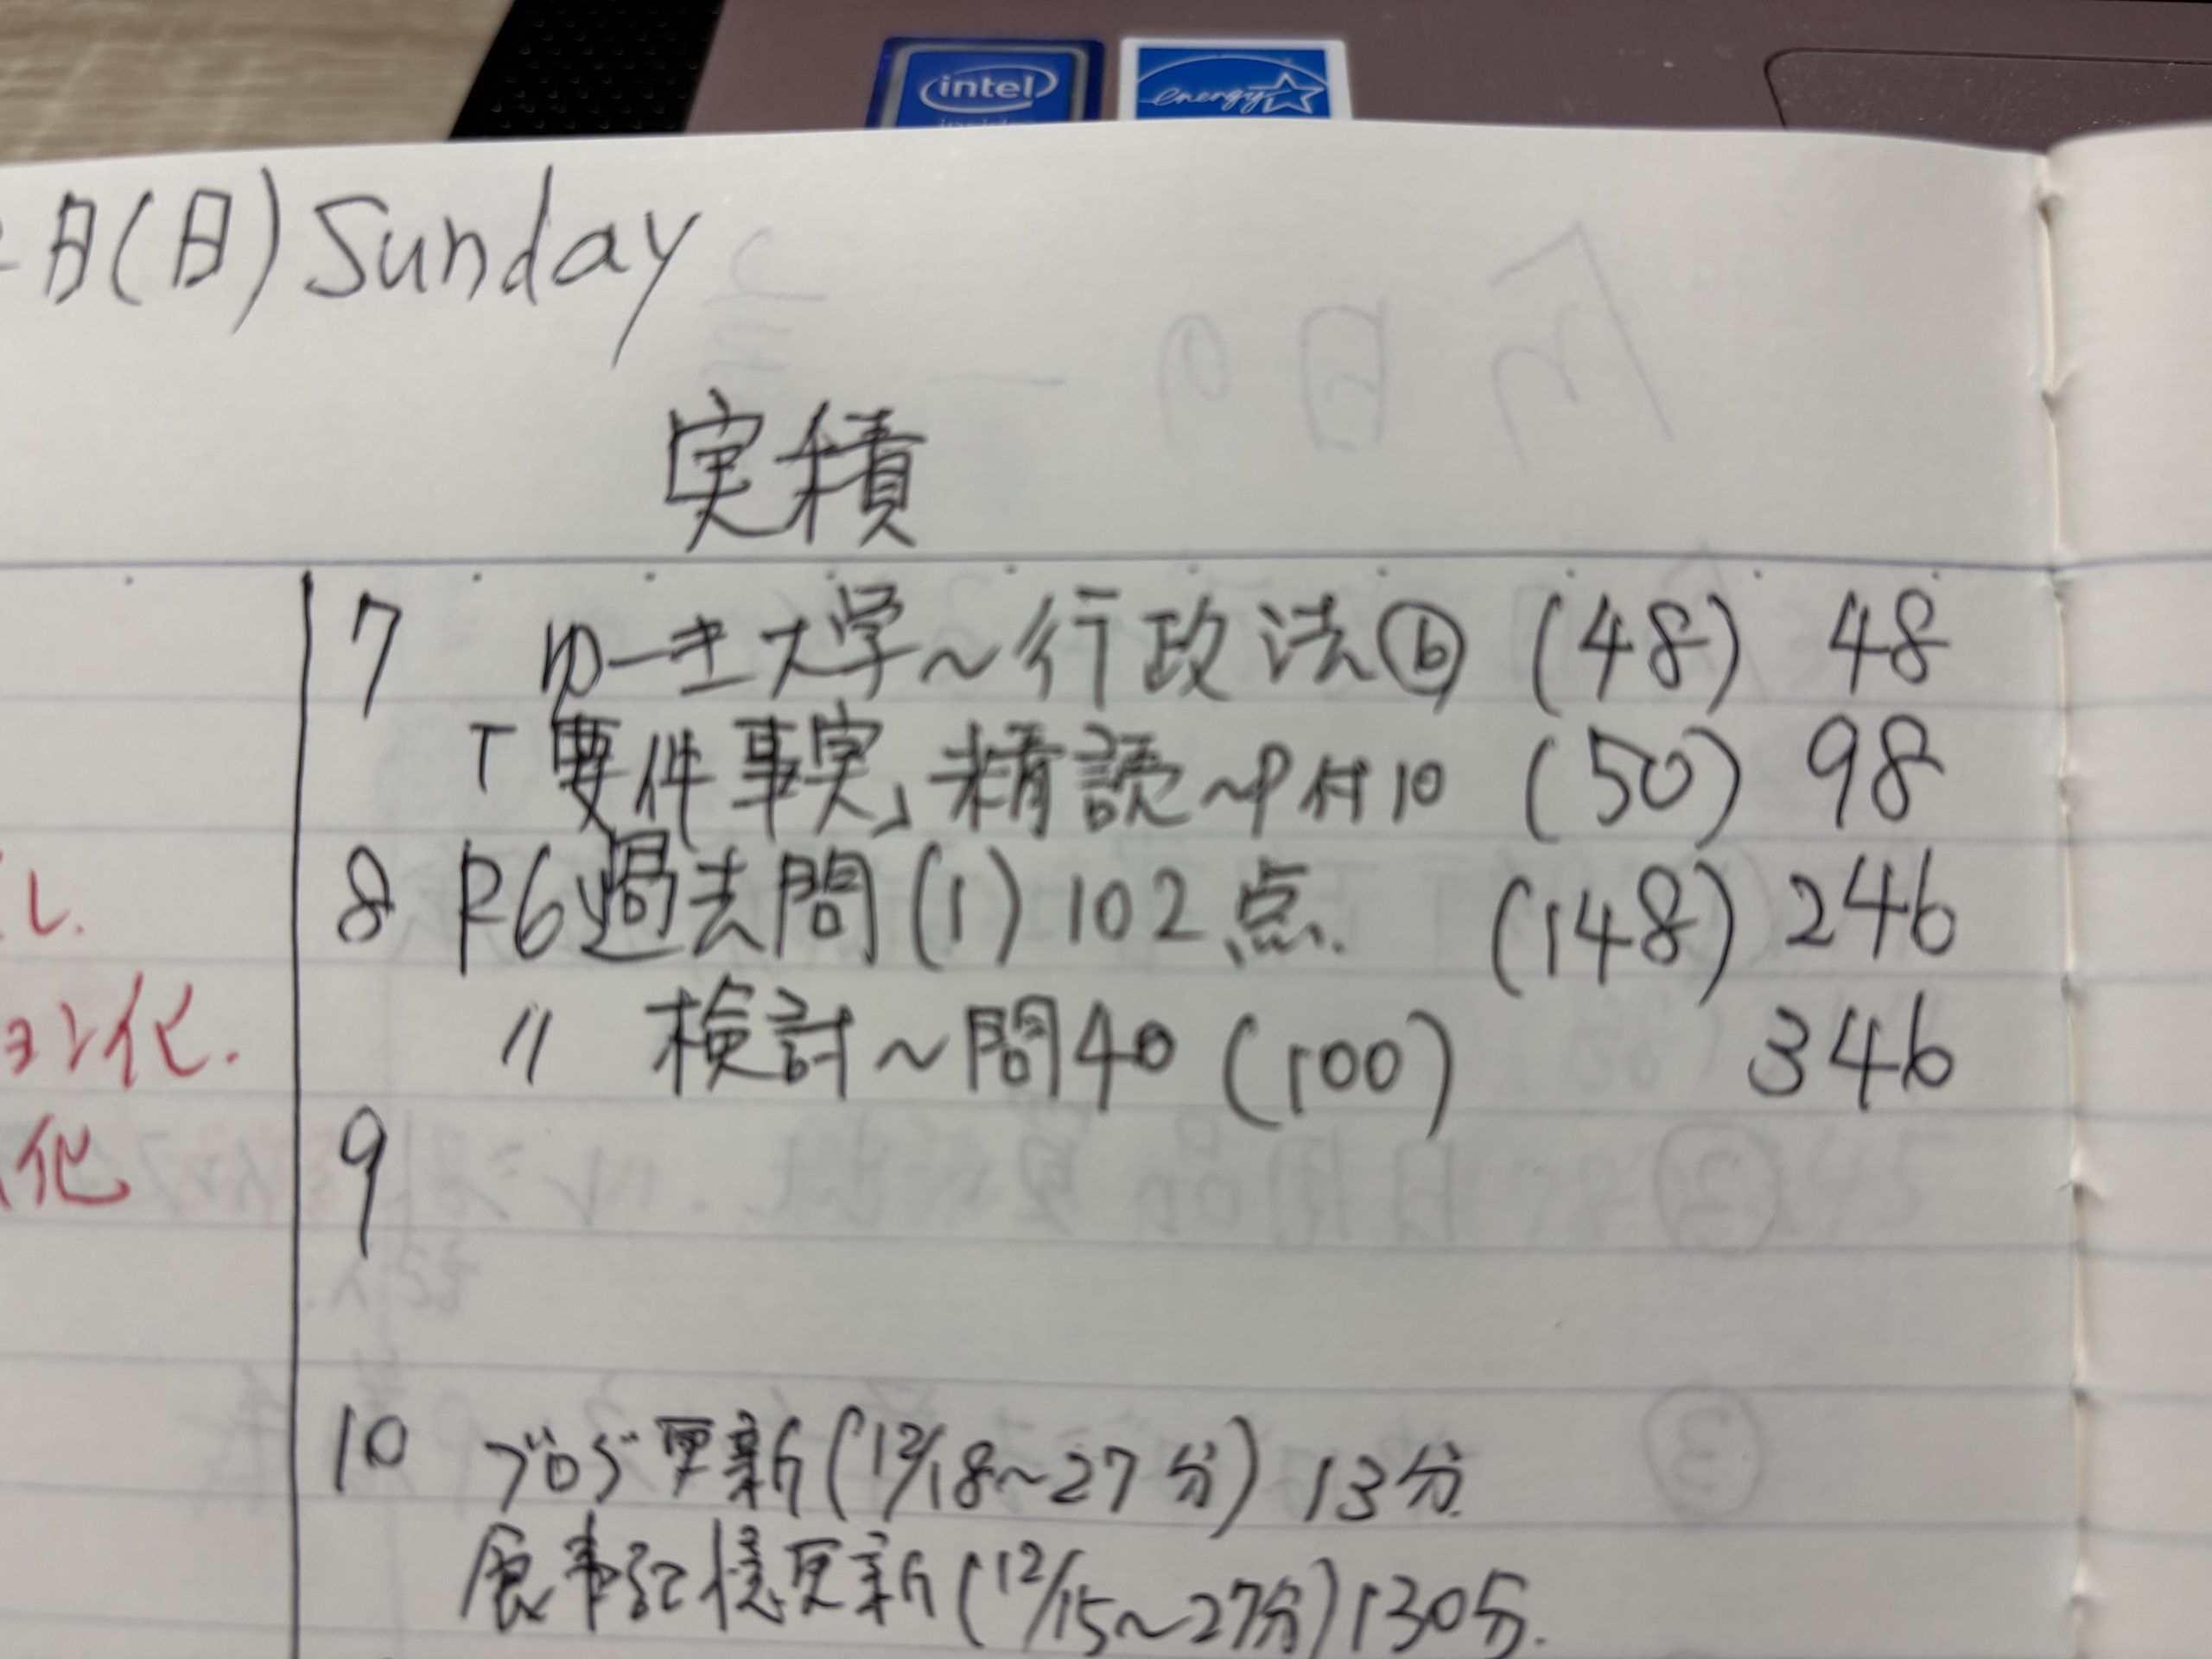 intel
energy
日(日) Sunday
実積
7 ゆーき大学~行政法⑥ (48) 48
「要件事実」精読~P付10 (50) 98
8 R6過去問(1) 102点. (148) 246
し.
〃 検討~問40 (100) 346
ョン化.
9
化
10 ブログ更新(12/18~27分) 13分.
食事記憶更新(12/15~27分) 130分.